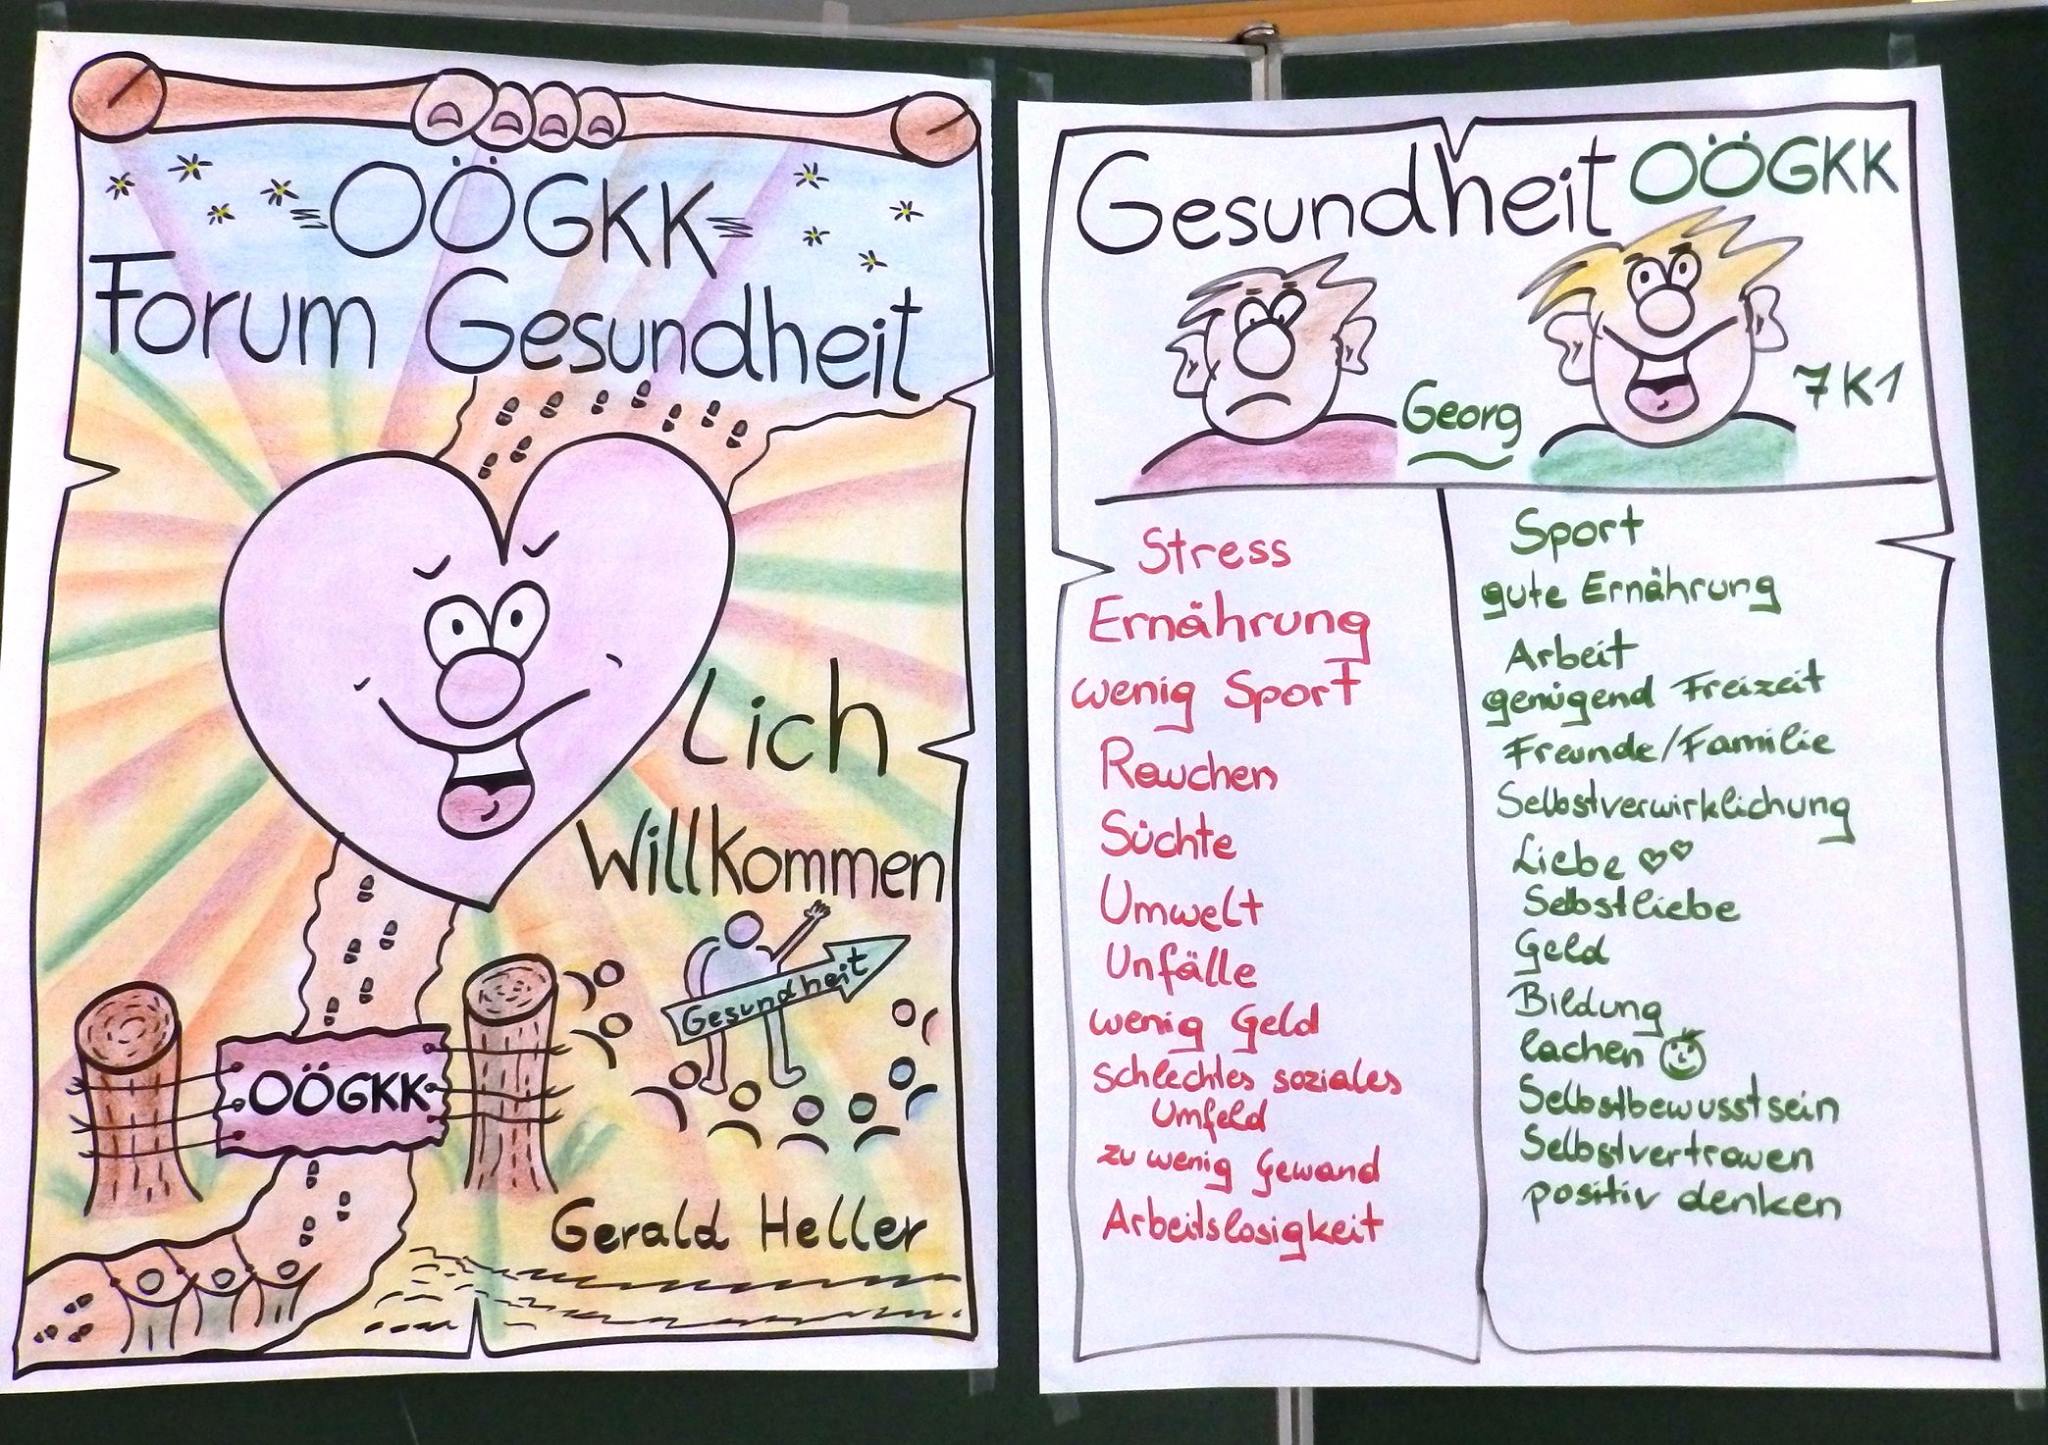 OÖGKK
Forum Gesundheit
Lich
Willkommen
Gesundheit
OÖGKK
Gerald Heller
Gesundheit OÖGKK
Georg
7K1
Stress
Ernährung
wenig Sport
Rauchen
Süchte
Umwelt
Unfälle
wenig Geld
schlechtes soziales
Umfeld
zu wenig Gewand
Arbeitslosigkeit
Sport
gute Ernährung
Arbeit
genügend Freizeit
Freunde/Familie
Selbstverwirklichung
Liebe
Selbstliebe
Geld
Bildung
lachen
Selbstbewusstsein
Selbstvertrauen
positiv denken